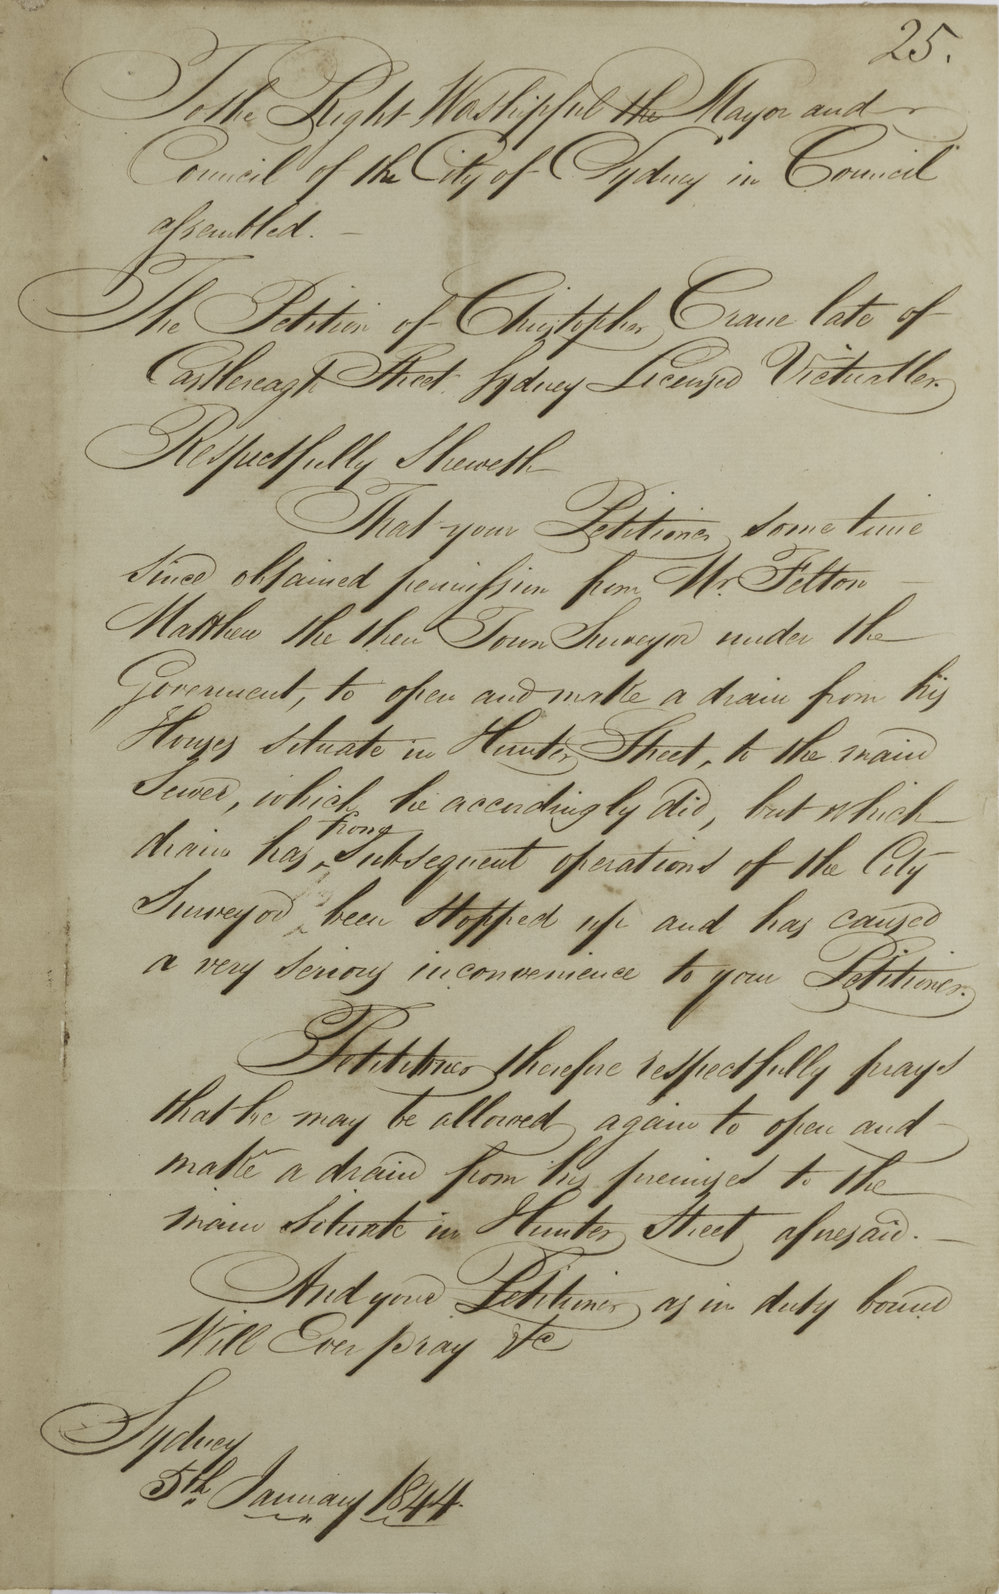 25.
To the Right Worshipful the Mayor and
Council of the City of Sydney in Council
assembled. —
The Petition of Christopher Crane late of
Castlereagh Street Sydney Licensed Victualler.
Respectfully Sheweth
That your Petitioner some time
since obtained permission from Mr. Felton
Matthew the then Town Surveyor under the
Goverment, to open and make a drain from his
Houses situate in Hunter Street, to the main
Sewer, which he accordingly did, but which
from
drain has ^ subsequent operations of the City
Surveyor been stopped up and has caused
a very serious inconvenience to your Petitioner.
Petitioner therefore respectfully prays
that he may be allowed again to open and
make a drain from his premises to the
main situate in Hunter Street aforesaid. —
And your Petitioner as in duty bound
Will Ever pray &c
Sydney
5th January 1844.